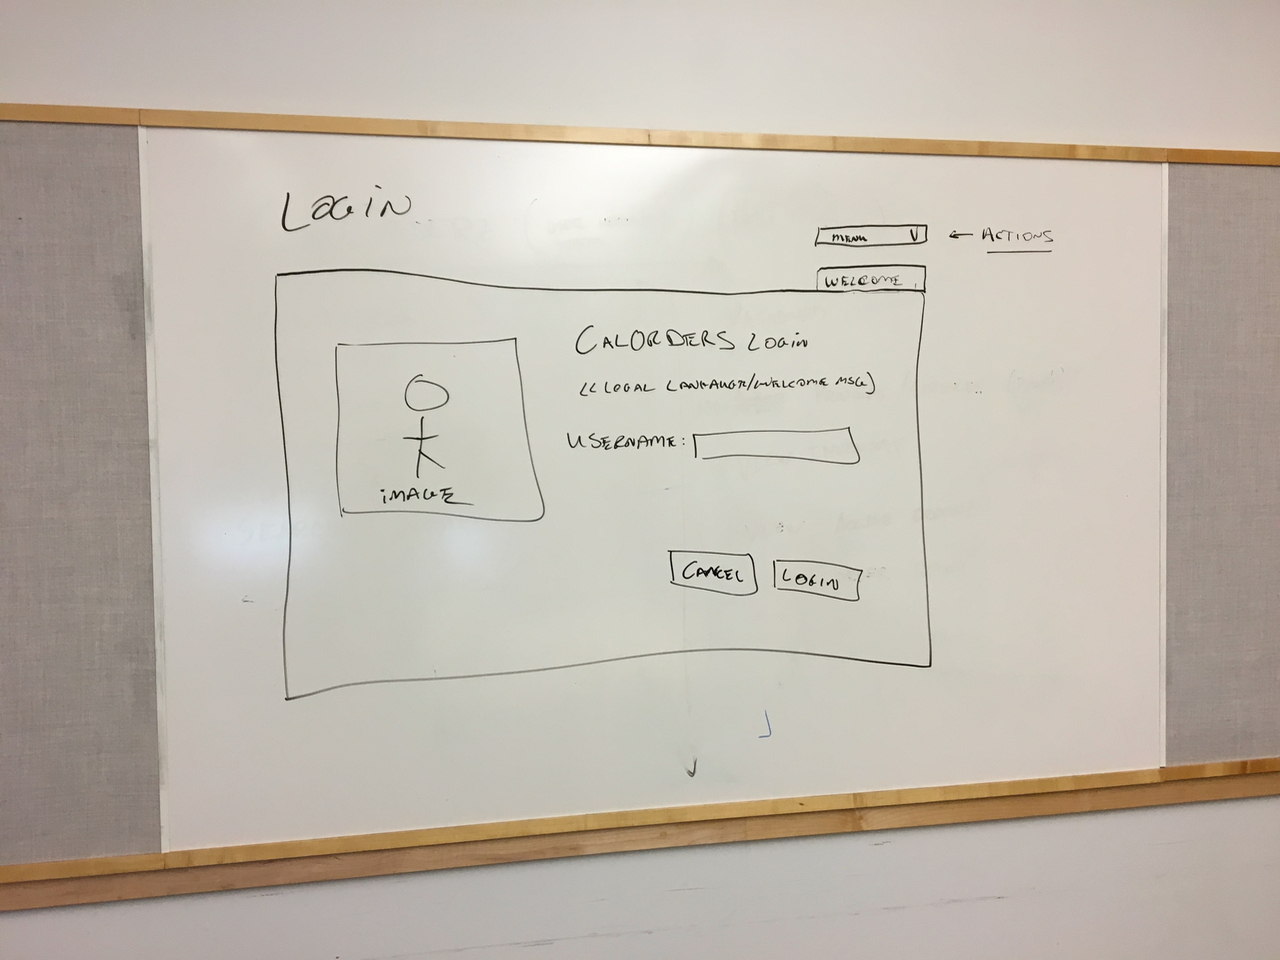 LOGIN
MENU V
← ACTIONS
WELCOME
CALORDERS LOGIN
<< LOCAL LANGUAGE/WELCOME MSG>
USERNAME:
IMAGE
CANCEL
LOGIN